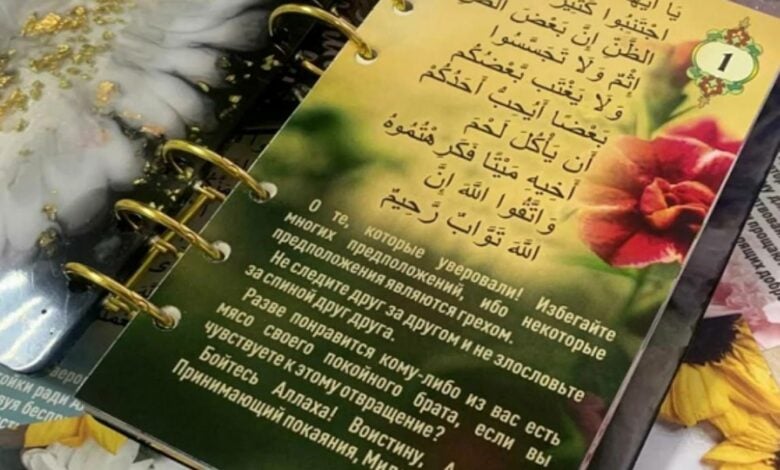 يَا أَيُّهَا
اجْتَنِبُوا كَثِيرً
الظَّنِّ إِنَّ بَعْضَ الظَّنِّ
إِثْمٌ وَلَا تَجَسَّسُوا
وَلَا يَغْتَب بَّعْضُكُم
بَعْضًا أَيُحِبُّ أَحَدُكُمْ
أَن يَأْكُلَ لَحْمَ
أَخِيهِ مَيْتًا فَكَرِهْتُمُوهُ
وَاتَّقُوا اللَّهَ إِنَّ
اللَّهَ تَوَّابٌ رَّحِيمٌ
1
О те, которые уверовали! Избегайте
многих предположений, ибо некоторые
предположения являются грехом.
Не следите друг за другом и не злословьте
за спиной друг друга.
Разве понравится кому-либо из вас есть
мясо своего покойного брата, если вы
чувствуете к этому отвращение?
Бойтесь Аллаха! Воистину, А
Принимающий покаяния, Мил